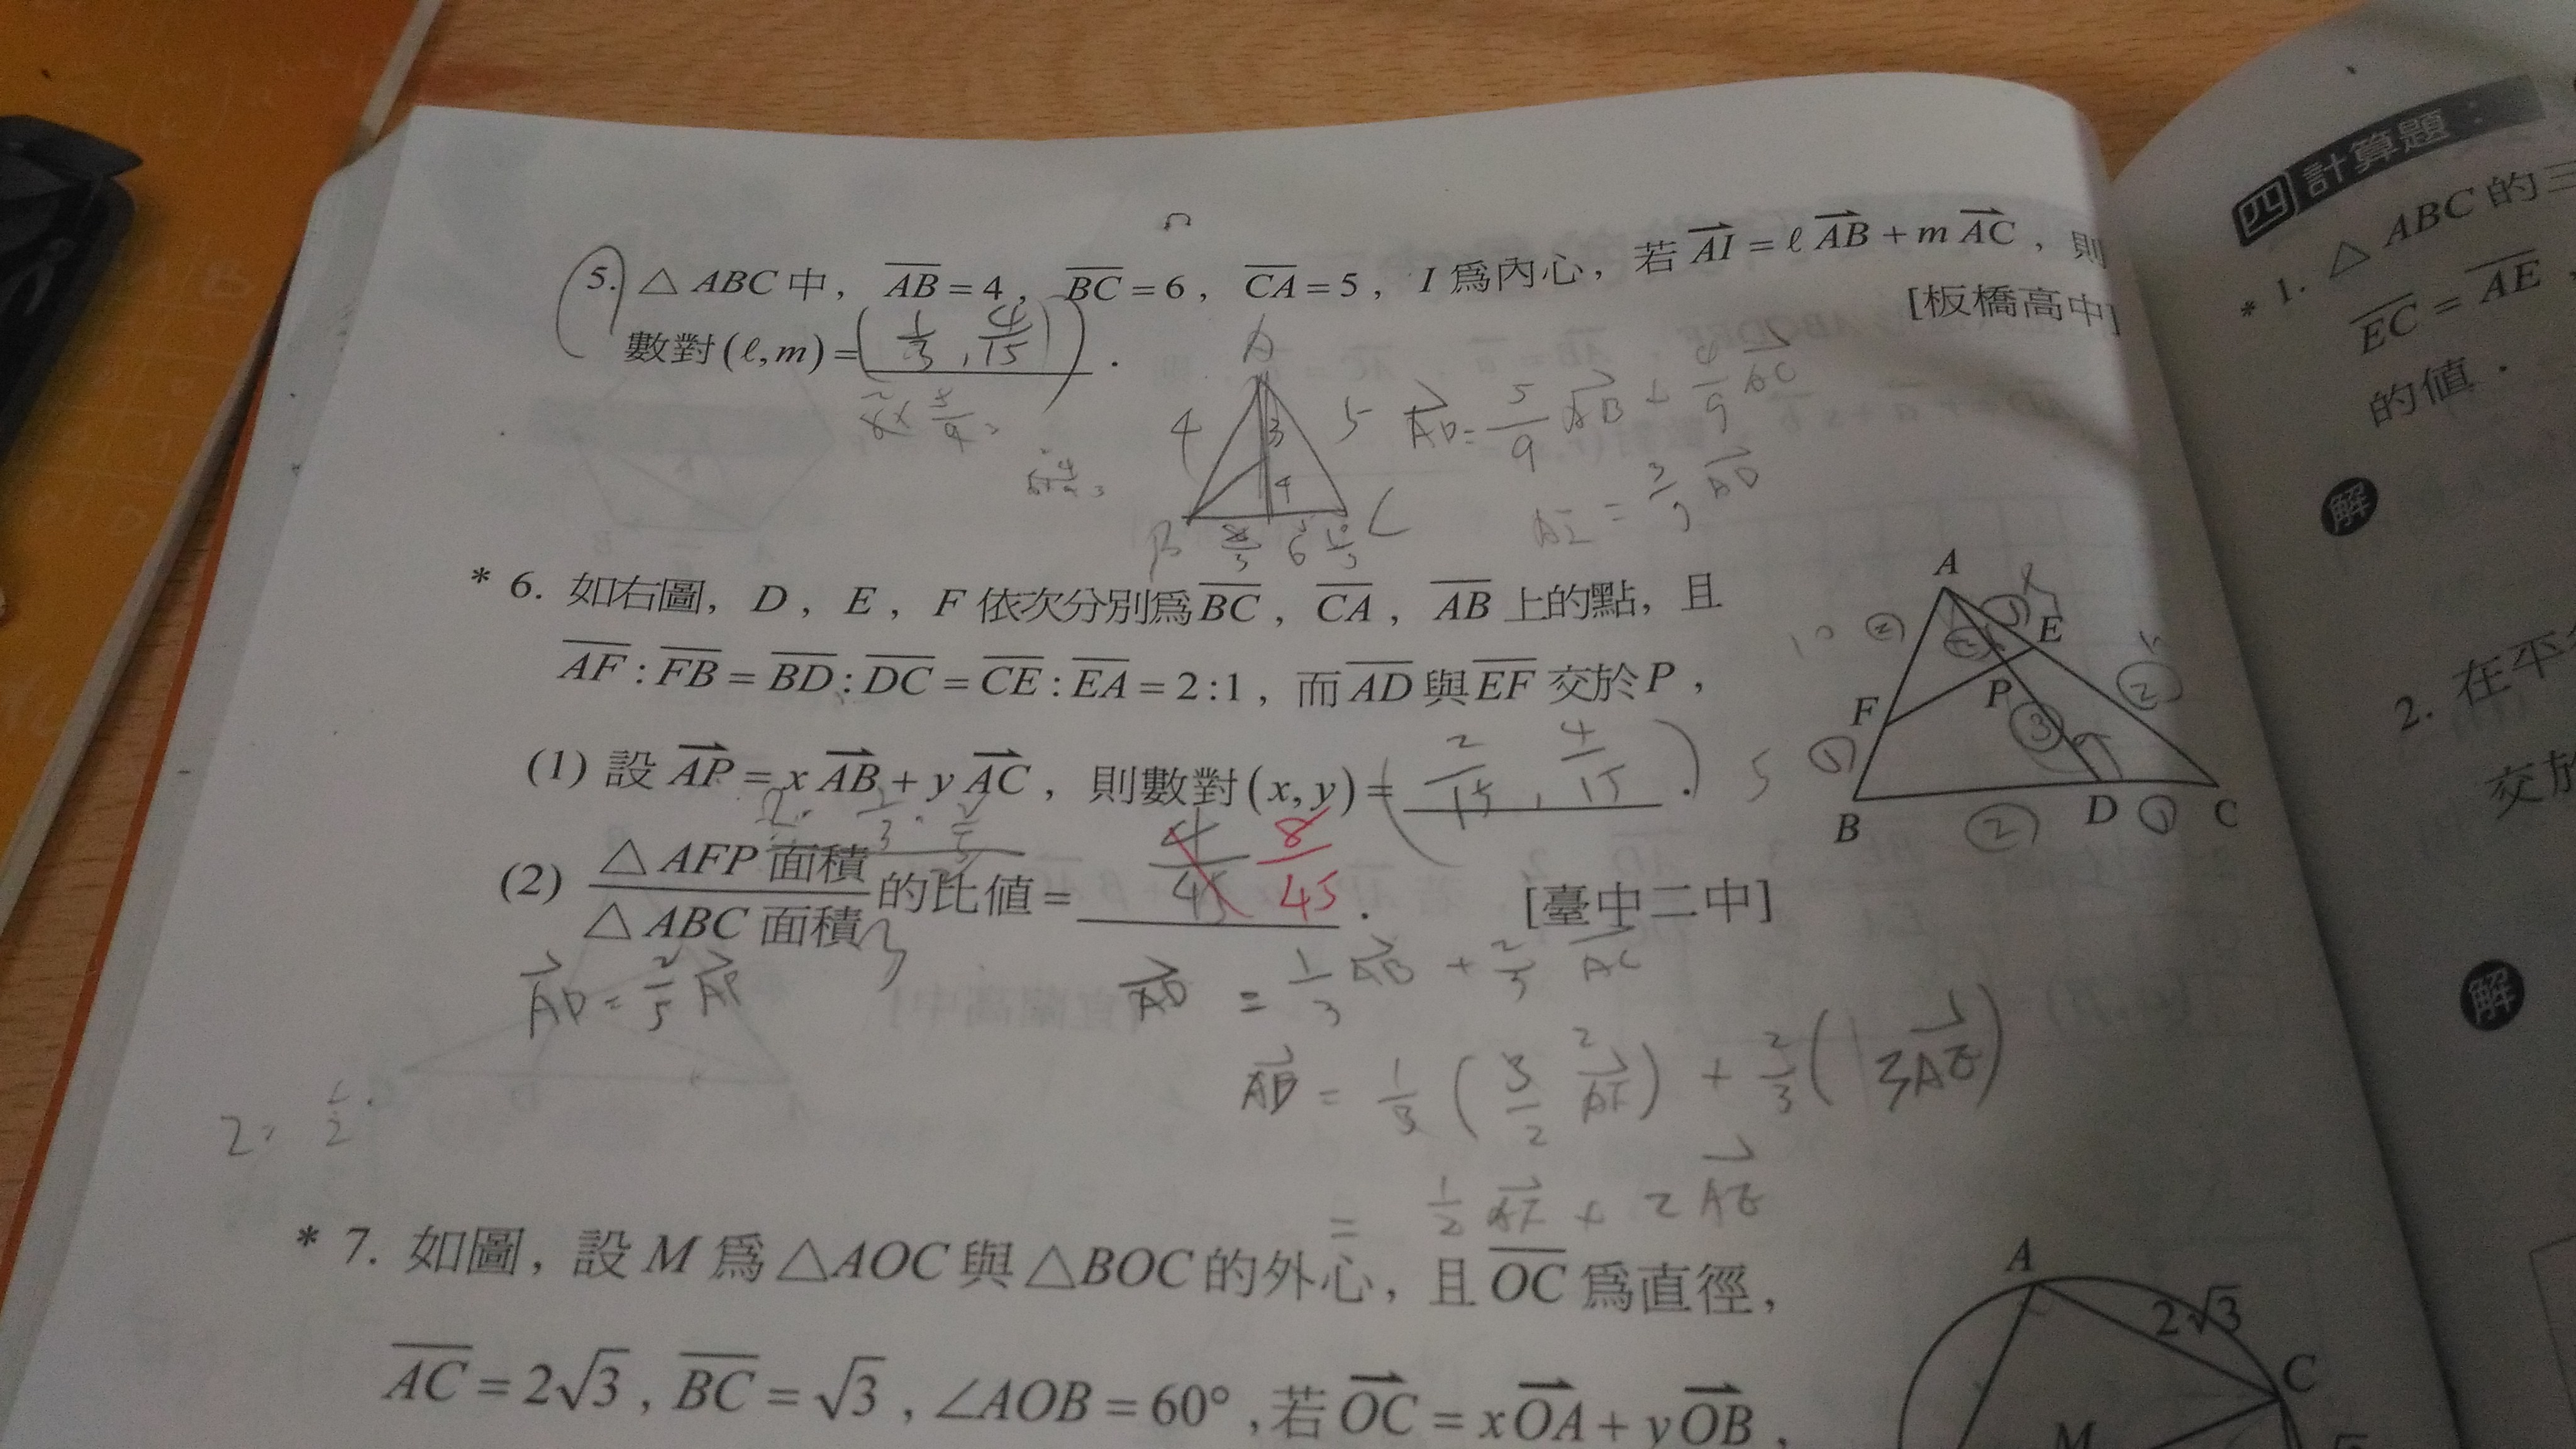 5. △ABC中，AB=4，BC=6，CA=5，I爲內心，若AI=ℓAB+mAC，則
[板橋高中]
數對(ℓ,m)=(1/3,4/15).
A
4
3
5
AD=5/9AB+4/9AC
4
B
6
C
* 6. 如右圖，D，E，F依次分別爲BC，CA，AB上的點，且
AF:FB=BD:DC=CE:EA=2:1，而AD與EF交於P，
(1) 設AP=xAB+yAC，則數對(x,y)=(2/15,4/15).
(2) △AFP面積/△ABC面積的比值=4/45 8/45. [臺中二中]
A
E
P
F
B
D
C
②
①
②
③
①
②
①
AD=2/5AP
AD=1/3AB+2/3AC
AD=1/3(3/2AF)+2/3(3AE)
=1/2AF+2AE
* 7. 如圖，設M爲△AOC與△BOC的外心，且OC爲直徑，
AC=2√3，BC=√3，∠AOB=60°，若OC=xOA+yOB，
A
2√3
C
M
四 計算題：
* 1. △ABC的三
EC=AE
的值．
解
2. 在平
交於
解